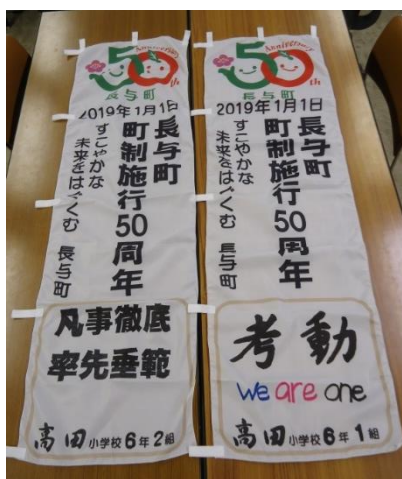 50
Anniversary
th
長与町
2019年1月1日
長与町
町制施行50周年
すこやかな
未来をはぐくむ 長与町
凡事徹底
率先垂範
高田小学校6年2組
50
Anniversary
th
長与町
2019年1月1日
長与町
町制施行50周年
すこやかな
未来をはぐくむ 長与町
考動
We are one
高田小学校6年1組